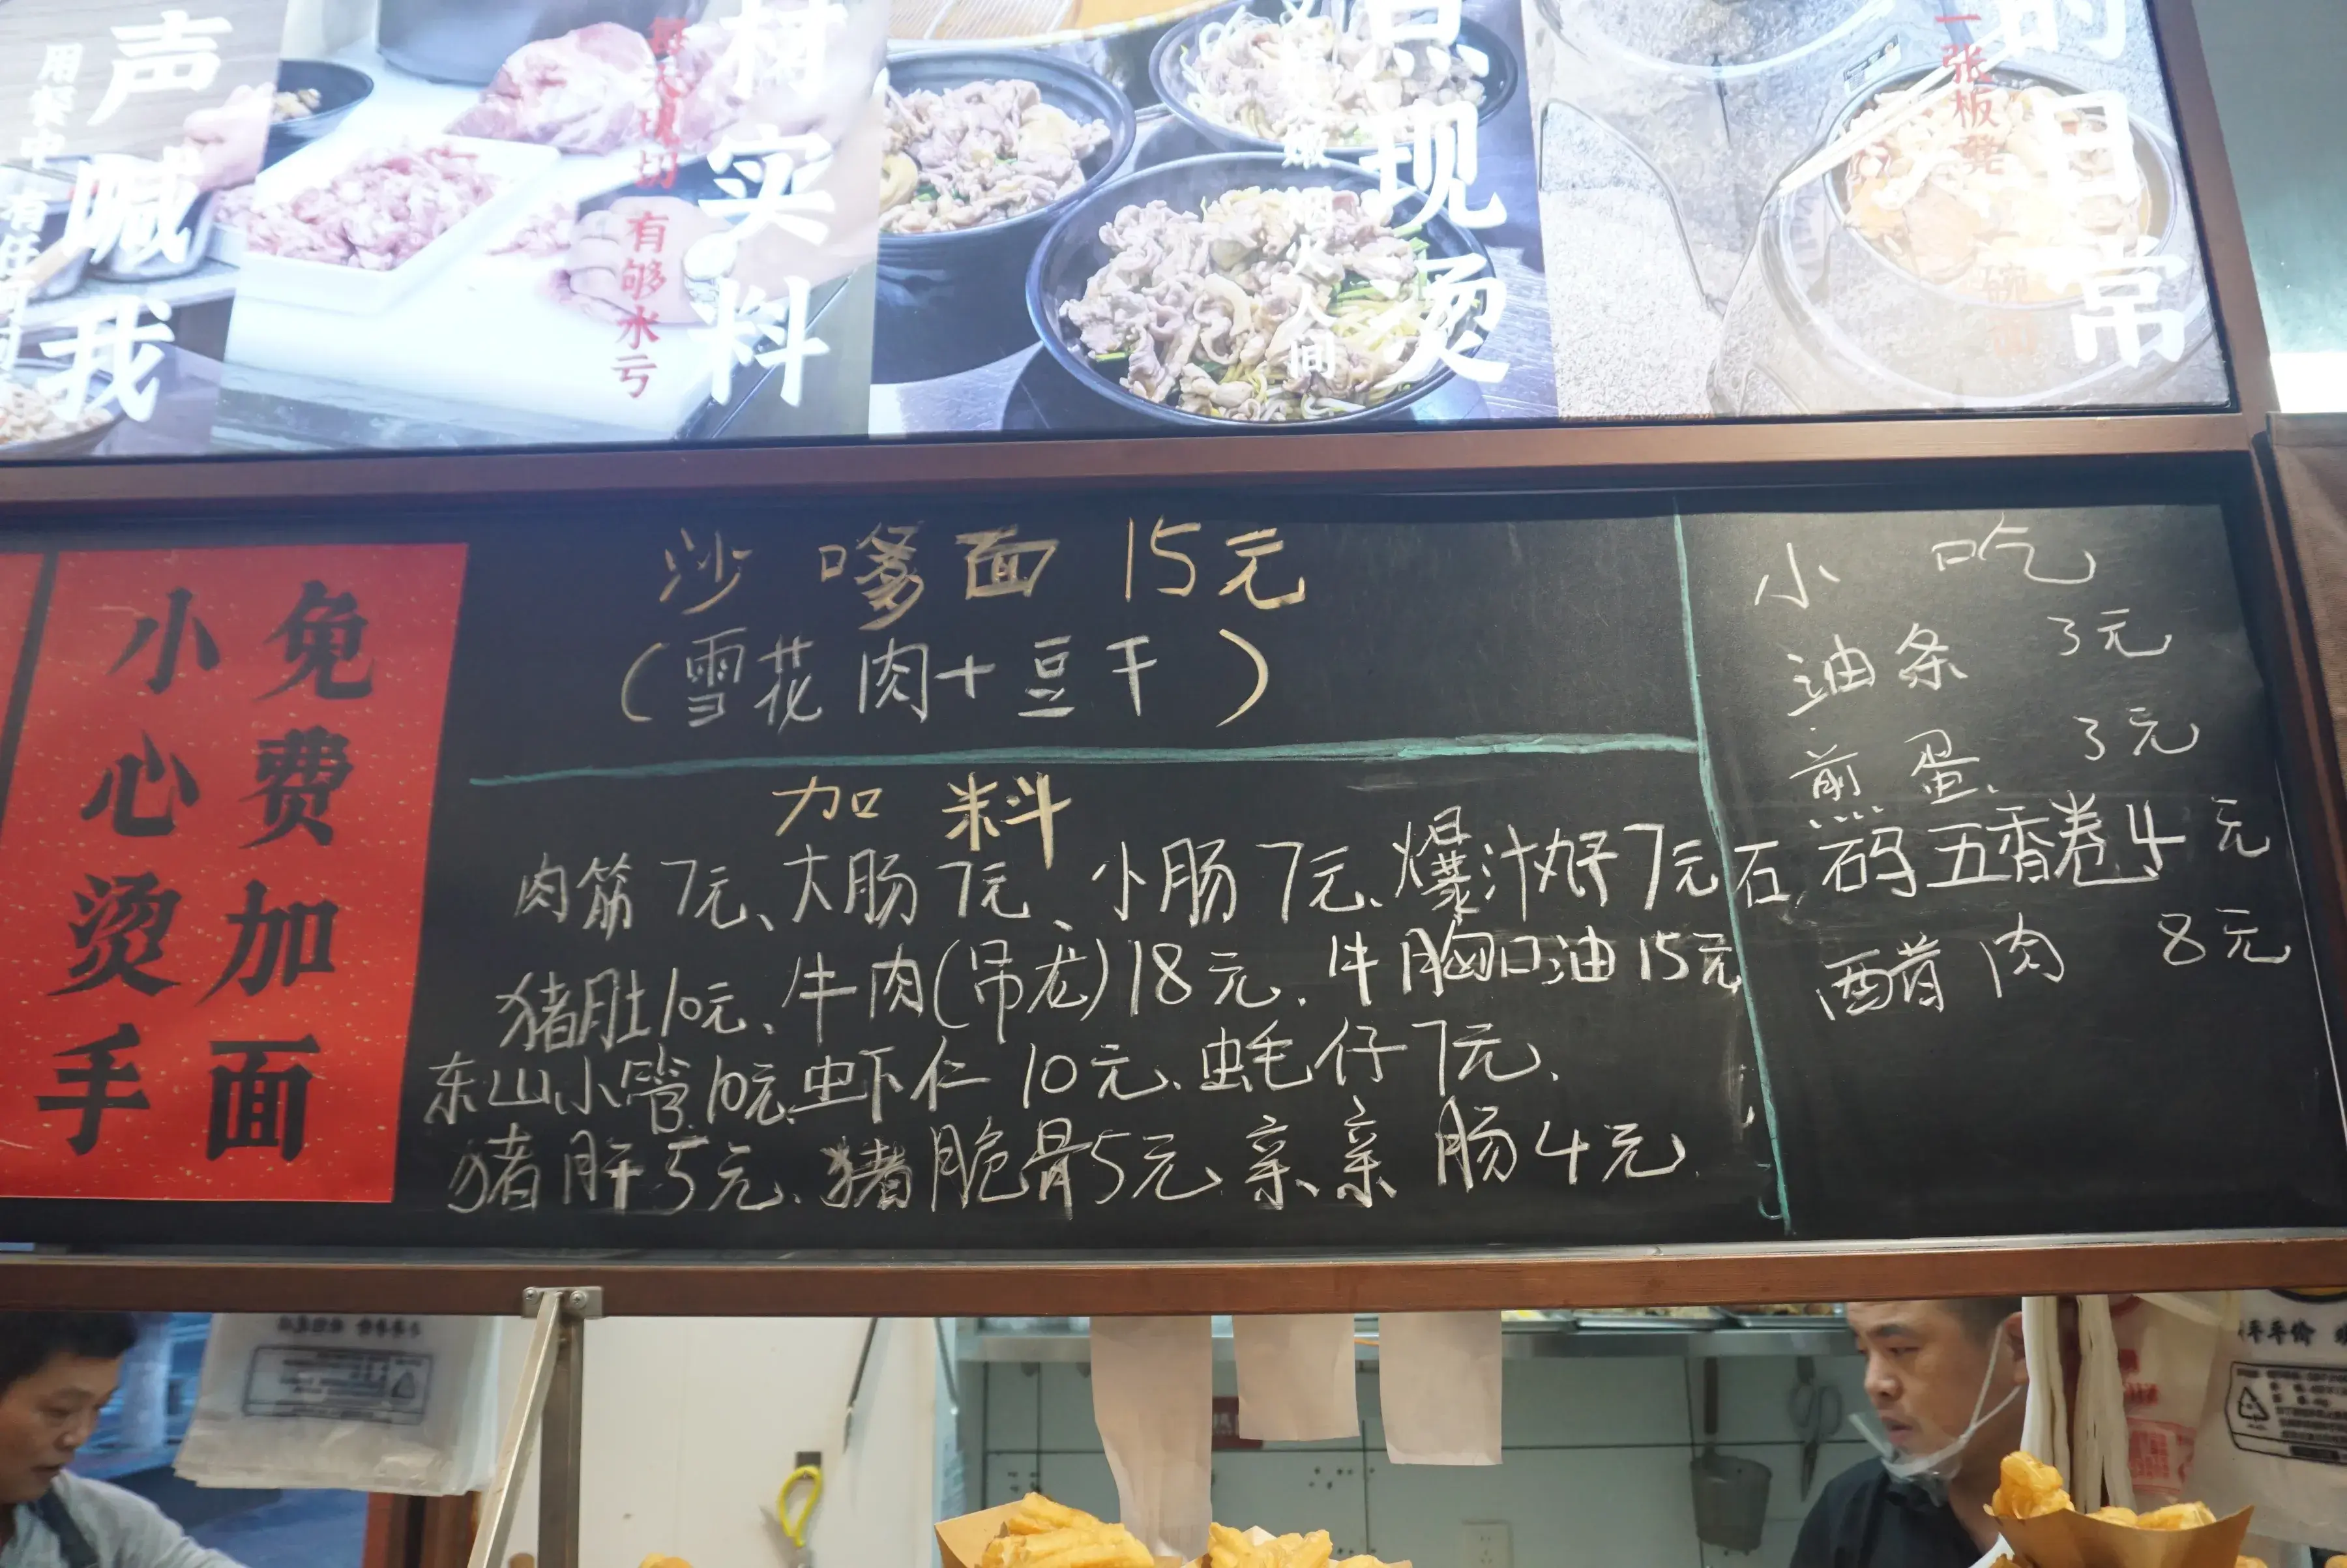 声喊我
用餐中
材实料
每天现切
有够水亏
点现烫
烟人人间
的日常
一张板凳
一碗面
免费加面
小心烫手
沙嗲面 15元
(雪花肉+豆干)
加料
肉筋7元、大肠7元、小肠7元、爆汁丸仔7元
猪肚10元、牛肉(吊龙)18元、牛胸口油15元
东山小管10元、虫下仁10元、虫毛仔7元、
猪肝5元、猪脆骨5元、亲亲肠4元
小吃
油条 3元
煎蛋 3元
石码五香卷4元
醋肉 8元